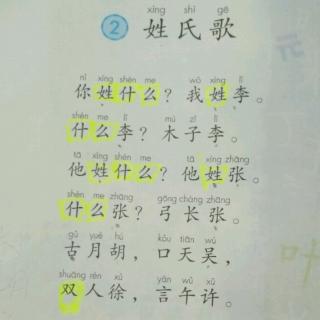 xìng shì gē
2 姓氏歌
nǐ xìng shén me wǒ xìng lǐ
你姓什么？我姓李。
shén me lǐ mù zǐ lǐ
什么李？木子李。
tā xìng shén me tā xìng zhāng
他姓什么？他姓张。
shén me zhāng gōng cháng zhāng
什么张？弓长张。
gǔ yuè hú kǒu tiān wú
古月胡，口天吴，
shuāng rén xú yán wǔ xǔ
双人徐，言午许。